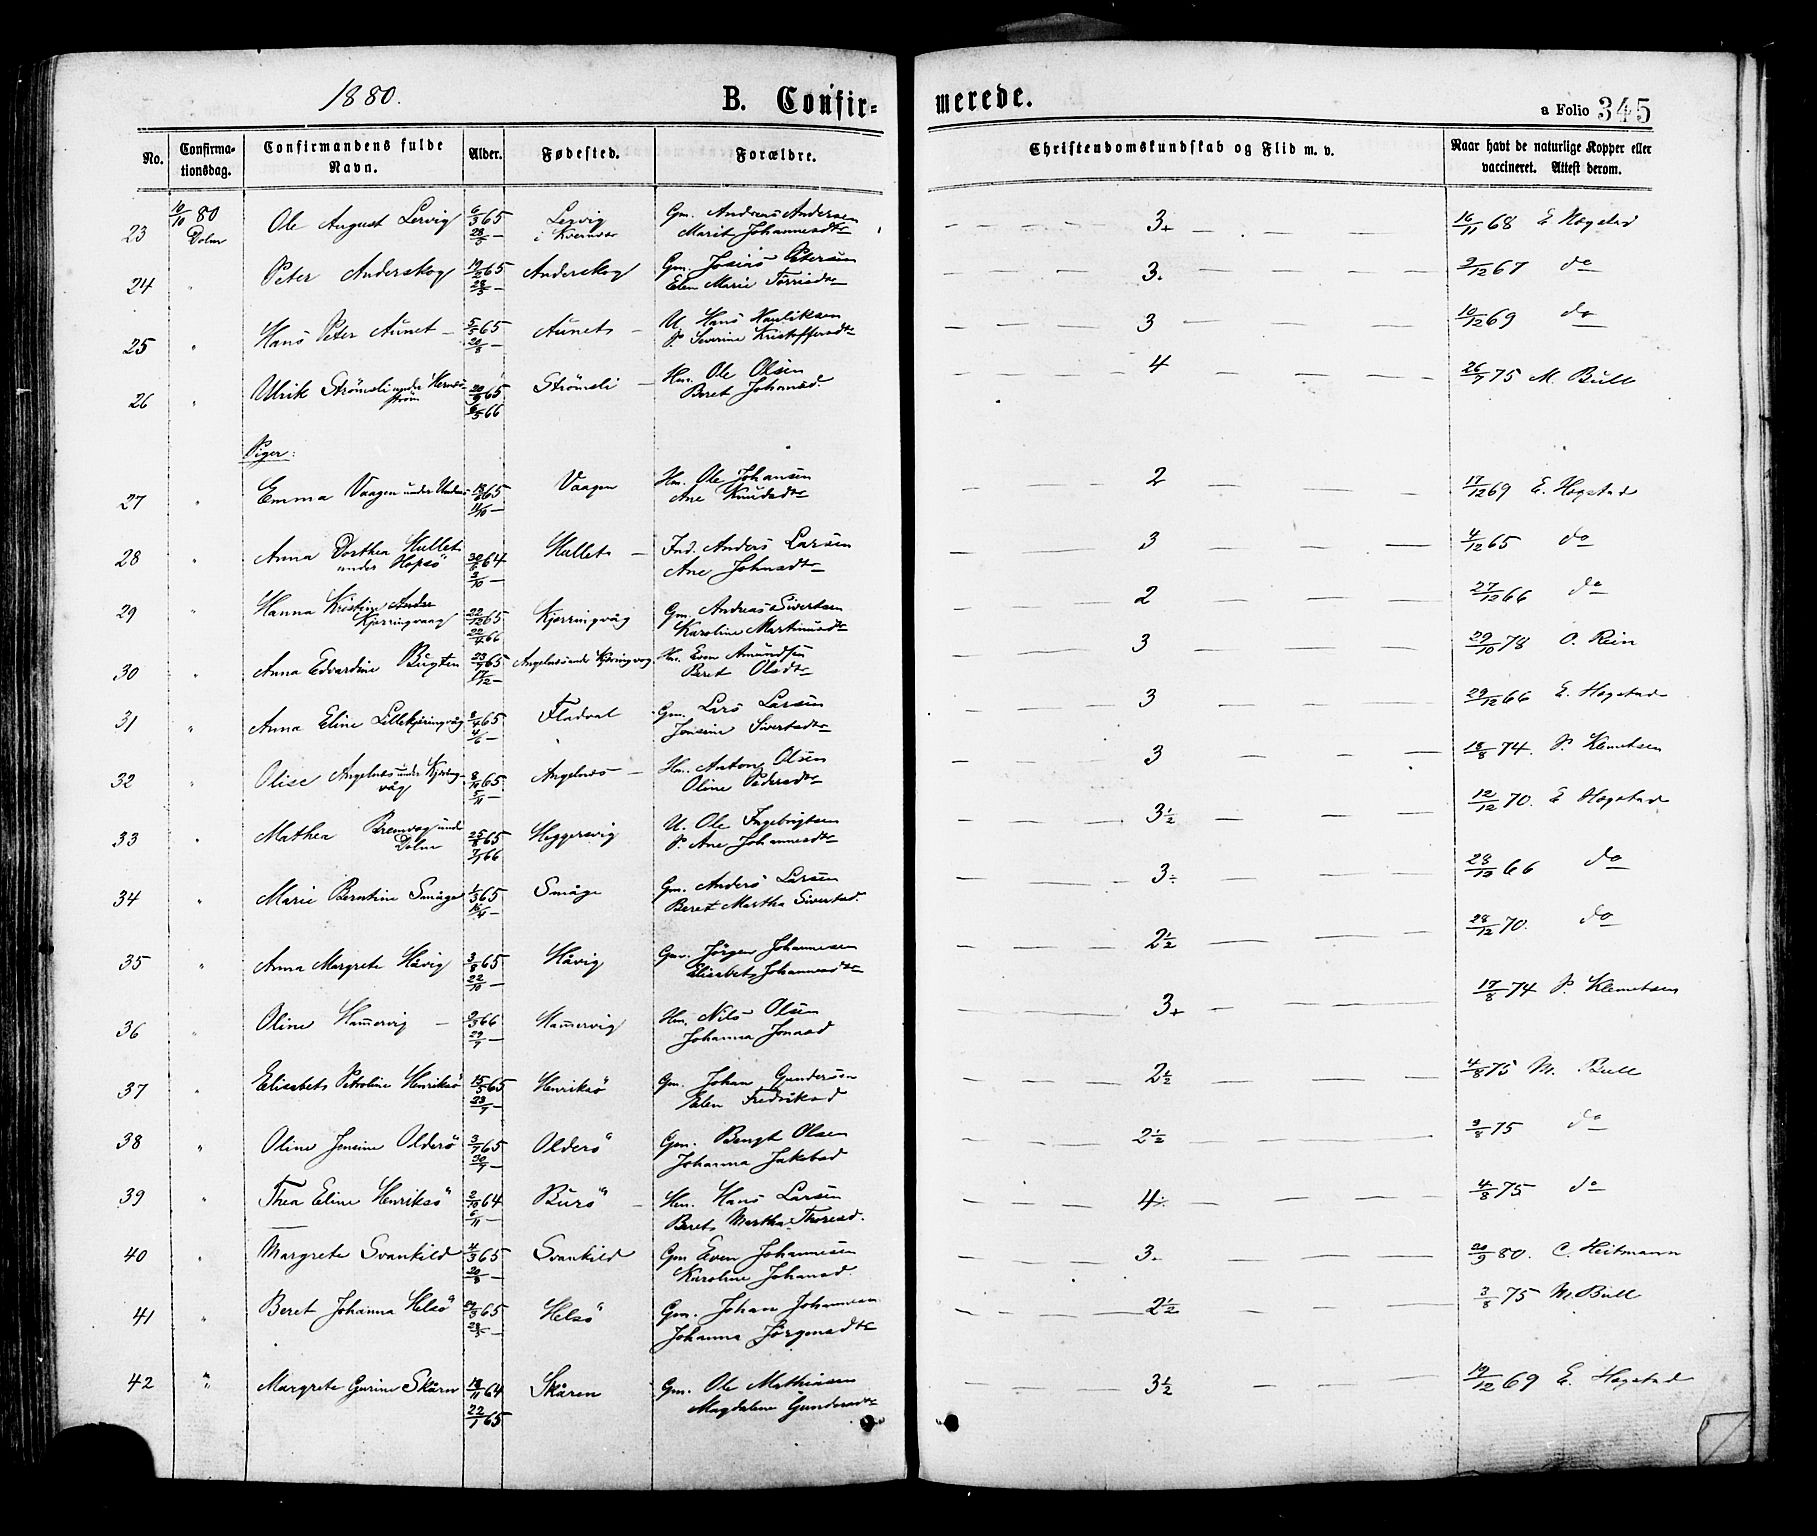 1880.
B. Confirmerede.
a Folio 345
No. Confirmationsdag. Confirmandens fulde Navn. Alder. Fødested. Forældre. Christendomskundskab og Flid m. v. Naar havt de naturlige Kopper eller vaccineret. Attest derom.
23 10/10 80 Dolm Ole August Lervig 6/3 65 28/5 — Lervig i Kvernvær Gm. Andreas Andersen Marit Johannesdtr 3+ 16/11 68 E Hogstad
24 " Peter Anderskog 19/2 65 28/5 — Anderskog Gm. Josias Petersen Elen Marie 3. 9/12 67 do
25 " Hans Peter Aunet — 5/5 65 20/8 — Aunets — U. Hans P. Siverine Kristoffersdtr 3 10/12 69 do
26 " Ulrik Strömsli under 20/9 65 6/5 66 Strömsli — Hm. Ole Olsen Beret Johansd. 4 26/7 75 M. Bull
Piger:
27 " Emma Vaagen under 65 Vaagen Hm. Ole Johansen Ane Knudsdtr 2 17/12 69 E. Hogstad
28 " Anna Dorthea Hullets under Hopsö 64 2/10 — Hullets — Ind. Anders Larsen Ane Johnsdtr 3 4/12 65 do
29 " Hanna Kristine Kjerringvaag 22/12 65 22/4 66 Kjerringvåg Gm. Andreas Sivertsen Karoline Martinusdtr 2 27/12 66 do
30 " Anna Edvardine Bugten 23/7 65 17/12 — Angelnæs under Kjerringvåg Hm. Even Amundsen Beret Olsdtr 3 29/10 78 O. Rein
31 " Anna Eline Lillekjerringvåg 8/4 65 4/6 — Fladval Gm. Lars Larsen Jonsine Sivertsdtr 3 29/12 66 E. Hogstad
32 " Olise Angelnæs under Kjerringvåg 8/10 65 5/11 — Angelnæs — Hm. Anton Olsen Oline Pedersdtr 3 18/8 74. P. Klemetsen
33 " Mathea Bremvåg under Dolm 25/8 65 7/1 66 Heggersvig U. Ole Ingebrigtsen P. Ane Johannesdtr 3 1/2 12/12 70. E Hogstad
34 " Marie Berntine Småge 1/3 65 16/4 — Småge Gm. Anders Larsen Beret Martha Sivertsd. 3÷ 23/12 66 do
35 " Anna Margrete Håvig 3/8 65 22/10 — Håvig Gm. Jörgen Johannesen Elisabet Johannesdtr 2 1/2 28/12 70. do
36 " Oline Hamervig — 2/3 66 29/7 — Hamervig Hm. Nils Olsen Johanna Jonasd 3+ 17/8 74 P. Klemetsen
37 " Elisabets Petroline Henriksö 15/5 65 23/7 — Henriksö Gm. Johan Gundersen Elen Fredriksd 2 1/2 4/8 75 M. Bull
38 " Oline Jensine Olderö 3/7 65 30/7 — Olderö Gm. Bengt Olsen Johanna Jakobsd 2 1/2 3/8 75 do
39 " Thea Eline Henriksö 2/10 64 6/11 — Burö — Hm. Hans Larsen Berets Martha Thoresd. 4÷ 4/8 75 do
40 " Margrete Svankild 4/3 65 20/8 — Svankild Gm Even Johannesen Karoline Johansd. 3. 20/9 80. C. Heitmann
41 " Beret Johanna Helsö 65 28/5 — Helsö Gm. Johan Johannesen Johanna Jörgensdtr 2 1/2 3/8 75 M. Bull
42 " Margrete Gurine Skåren 18/11 64 22/1 65 Skåren Gm. Ole Mathiasen Magdalene Gundersdtr 3 1/2 19/12 69 E. Hogstad